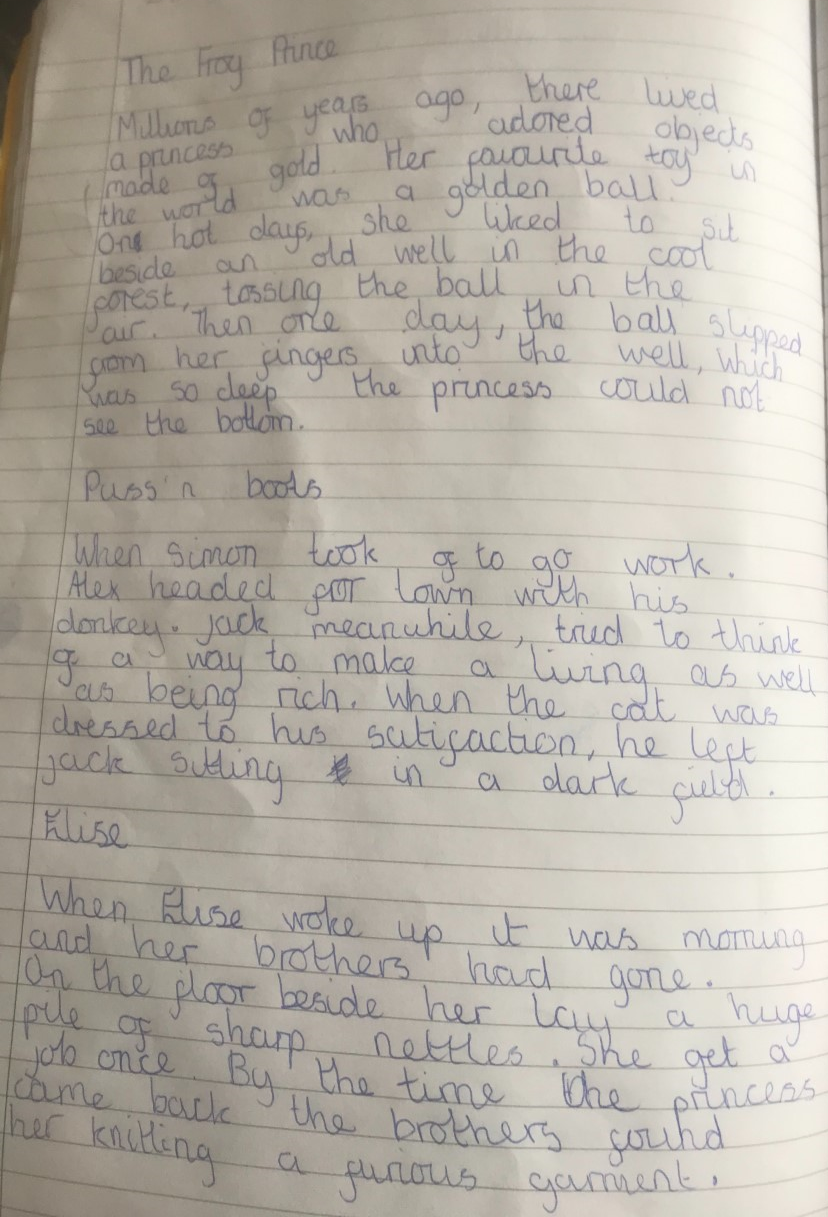 The Frog Prince
Millions of years ago, there lived
a princess who adored objects
made of gold. Her favourite toy in
the world was a golden ball.
On hot days, she liked to sit
beside an old well in the cool
forest, tossing the ball in the
air. Then one day, the ball slipped
from her fingers into the well, which
was so deep the princess could not
see the bottom.
Puss'n boots
When Simon took of to go work.
Alex headed for town with his
donkey. Jack meanwhile, tried to think
of a way to make a living as well
as being rich. When the cat was
dressed to his satifaction, he left
jack sitting in a dark field.
Elise
When Elise woke up it was morning
and her brothers had gone.
On the floor beside her lay a huge
pile of sharp nettles. She get a
job once. By the time the princess
came back the brothers found
her knitting a furious garment.